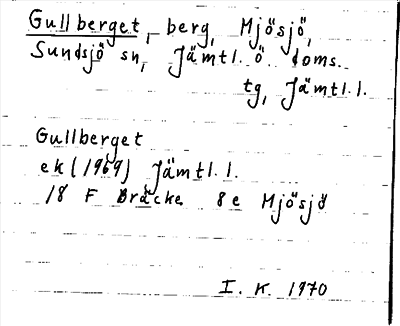 Gullberget, berg, Mjösjö,
Sundsjö sn, Jämtl. ö. doms.
tg, Jämtl. l.
Gullberget
ek (1969) Jämtl. l.
18 F Bräcke 8e Mjösjö
I. K. 1970